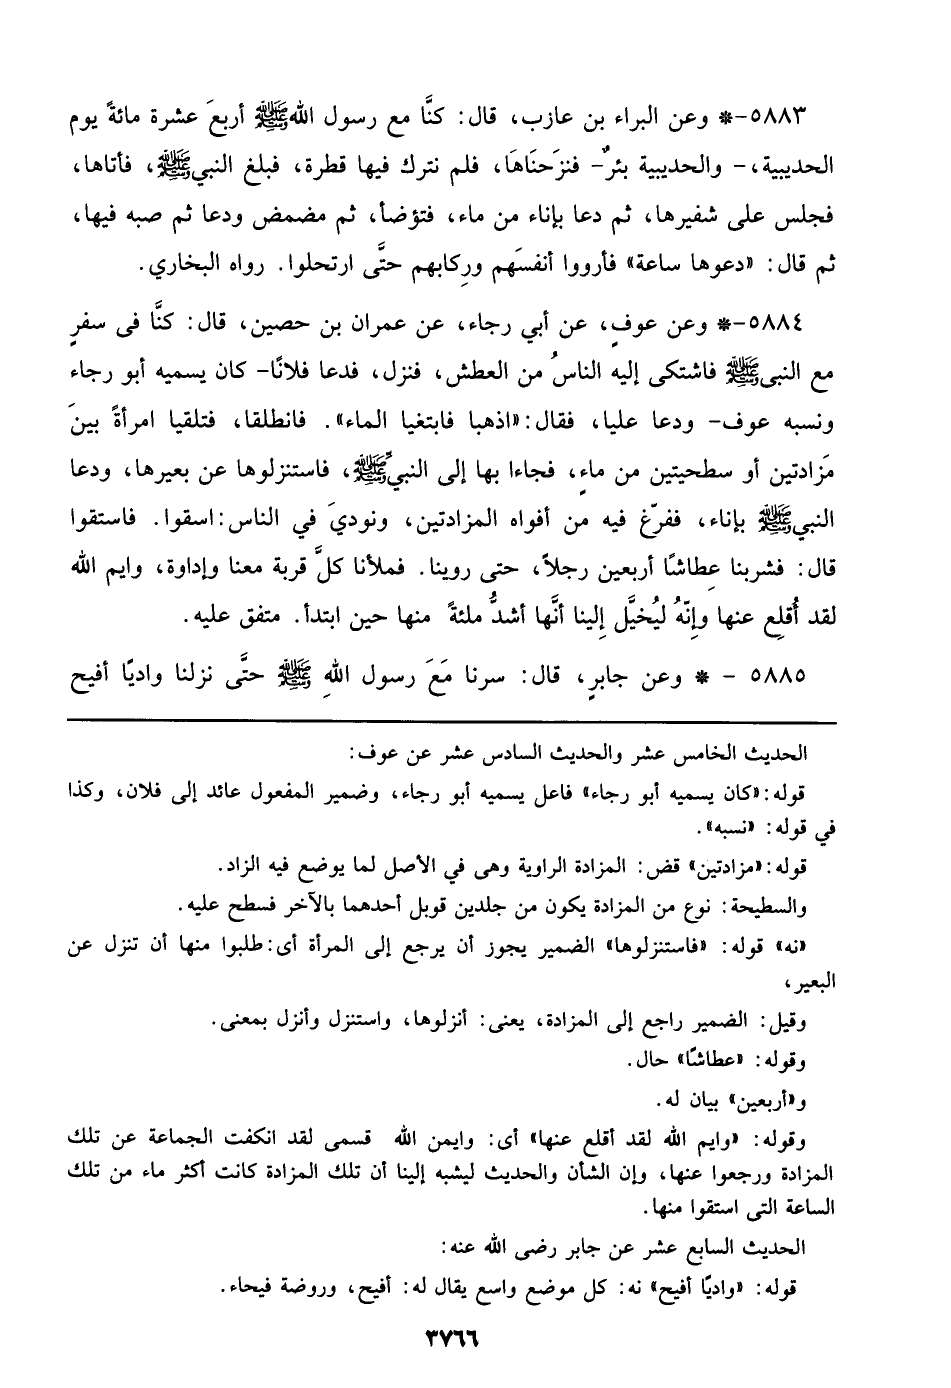 ٥٨٨٣-* وعن البراء بن عازب، قال: كنَّا مع رسول اللهﷺ أربعَ عشرة مائةً يوم
الحديبية،- والحديبية بئرٌ- فنزَحنَاهَا، فلم نترك فيها قطرة، فبلغ النبيﷺ، فأتاها،
فجلس على شفيرها، ثم دعا بإناء من ماء، فتؤضأ، ثم مضمض ودعا ثم صبه فيها،
ثم قال: «دعوها ساعة» فأرووا أنفسَهم ورِكابهم حتَّى ارتحلوا. رواه البخاري.
٥٨٨٤-* وعن عوفٍ، عن أبي رجاء، عن عمران بن حصين، قال: كنَّا فى سفرٍ
مع النبيﷺ فاشتكى إليه الناسُ من العطش، فنزل، فدعا فلانًا- كان يسميه أبو رجاء
ونسبه عوف- ودعا عليا، فقال:«اذهبا فابتغيا الماء». فانطلقا، فتلقيا امرأةً بينَ
مَزادتين أو سطحيتين من ماءٍ، فجاءا بها إلى النبيِّﷺ، فاستنزلوها عن بعيرها، ودعا
النبيﷺ بإناء، ففرّغ فيه من أفواه المزادتين، ونوديَ في الناس:اسقوا. فاستقوا
قال: فشربنا عِطاشًا أربعين رجلاً، حتى روينا. فملأنا كلَّ قربة معنا وإداوة، وايم الله
لقد أُقلِع عنها وإنّهُ ليُخيَّل إلينا أنَّها أشدُّ ملئةً منها حين ابتدأ. متفق عليه.
٥٨٨٥ - * وعن جابرٍ، قال: سرنا مَعَ رسول اللهِ ﷺ حتَّى نزلنا واديًا أفيح
الحديث الخامس عشر والحديث السادس عشر عن عوف:
قوله:«كان يسميه أبو رجاء» فاعل يسميه أبو رجاء، وضمير المفعول عائد إلى فلان، وكذا
في قوله: «نسبه».
قوله:«مزادتين» قض: المزادة الراوية وهى في الأصل لما يوضع فيه الزاد.
والسطيحة: نوع من المزادة يكون من جلدين قوبل أحدهما بالآخر فسطح عليه.
«نه» قوله: «فاستنزلوها» الضمير يجوز أن يرجع إلى المرأة أى:طلبوا منها أن تنزل عن
البعير،
وقيل: الضمير راجع إلى المزادة، يعنى: أنزلوها، واستنزل وأنزل بمعنى.
وقوله: «عطاشًا» حال.
و«أربعين» بيان له.
وقوله: «وايم الله لقد أقلع عنها» أى: وايمن الله قسمى لقد انكفت الجماعة عن تلك
المزادة ورجعوا عنها، وإن الشأن والحديث ليشبه إلينا أن تلك المزادة كانت أكثر ماء من تلك
الساعة التى استقوا منها.
الحديث السابع عشر عن جابر رضى الله عنه:
قوله: «واديًا أفيح» نه: كل موضع واسع يقال له: أفيح، وروضة فيحاء.
٣٧٦٦